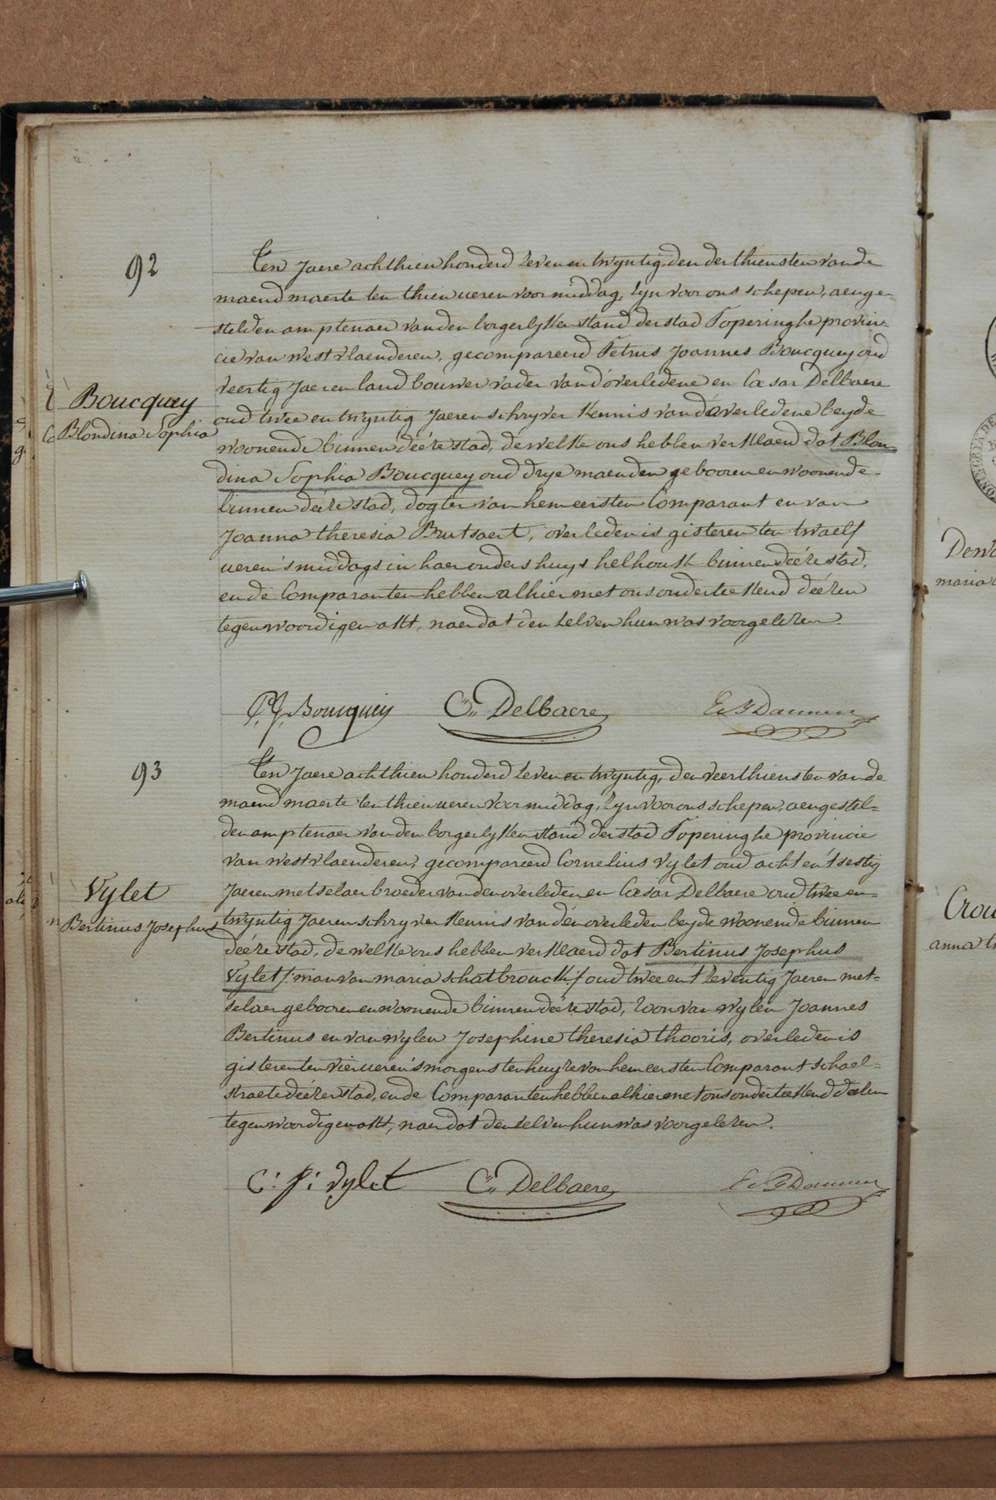 92
Boucquey
Blondina Sophia
Ten Jaere achthien honderd zeven en twyntig den derthiensten van de
maend maerte ten thien ueren voormiddag, zyn voor ons schepen, aenge-
stelden amptenaer van den borgerlyken stand der stad Poperinghe provin-
cie van westvlaenderen, gecompareerd Petrus Joannes Boucquey oud
veertig Jaeren landbouwer vader van d'overledene en Cæsar Delbaere
oud twee en twyntig Jaeren schryver kennis van d'overledene beyde
woonende binnen déézé stad, de welke ons hebben verklaerd dat Blon
dina Sophia Boucquey oud drye maenden gebooren en woonende
binnen déézé stad, dogter van hem eersten Comparant en van
Joanna theresia Brutsaert, overleden is gisteren ten twaelf
ueren 's middags in haer ouders huys helhouk binnen déézé stad,
en de Comparanten hebben alhier met ons onderteekend déézen
tegenwoordigen akt, naer dat den zelven hun was voorgelezen.
P. J. Boucquey C.. Delbaere
93
Vylet
Bertinus Josephus
Ten Jaere achthien honderd zeven en twyntig, den veerthiensten van de
maend maerte ten thien ueren voormiddag, zyn voor ons schepen, aengestel-
den amptenaer van den borgerlyken stand der stad Poperinghe provincie
van westvlaenderen, gecompareerd Cornelius Vylet oud acht en 't sestig
Jaeren metselaer broeder van den overleden en Cæsar Delbaere oud twee en
twyntig Jaeren schryver kennis van den overleden beyde woonende binnen
déézé stad, de welke ons hebben verklaerd dat Bertinus Josephus
Vylet /: man van maria schatbrouck :/ oud twee en t'zeventig Jaeren met-
selaer gebooren en woonende binnen déézé stad, zoon van wylen Joannes
Bertinus en van wylen Josephine theresia thooris, overleden is
gisteren ten vier ueren 's morgens ten huyze van hem eersten Comparant schael-
straete déézer stad, en de Comparanten hebben alhier met ons onderteekend déézen
tegenwoordigen akt, naer dat den zelven hun was voorgelezen.
C: J: Vylet C.. Delbaere
maria
Crou
anna t